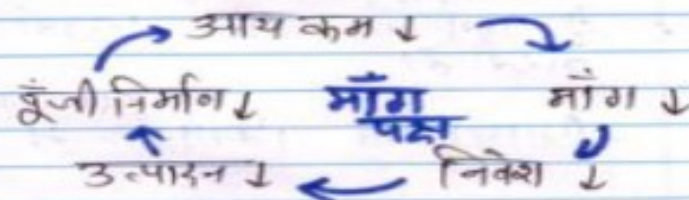 आय कम ↓
पूँजी निर्माण ↓ माँग पक्ष माँग ↓
उत्पादन ↓ निवेश ↓